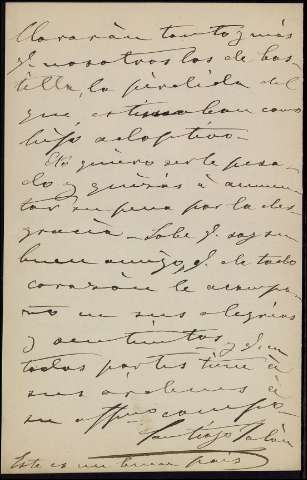 llorarán tanto más
q. nosotros los de Cas-
tilla, la pérdida del
que estimaban como
hijo adoptivo.
No quiero serle pesa-
do y quizás á aumen-
tar su pena por la des-
gracia. Sabe q. soy su
buen amigo, q. de todo
corazón le acompa-
ño en sus alegrías
y sentimtos y q. en
todas partes tiene á
sus órdenes á
su affmo compo
Santiago
Este es un buen país